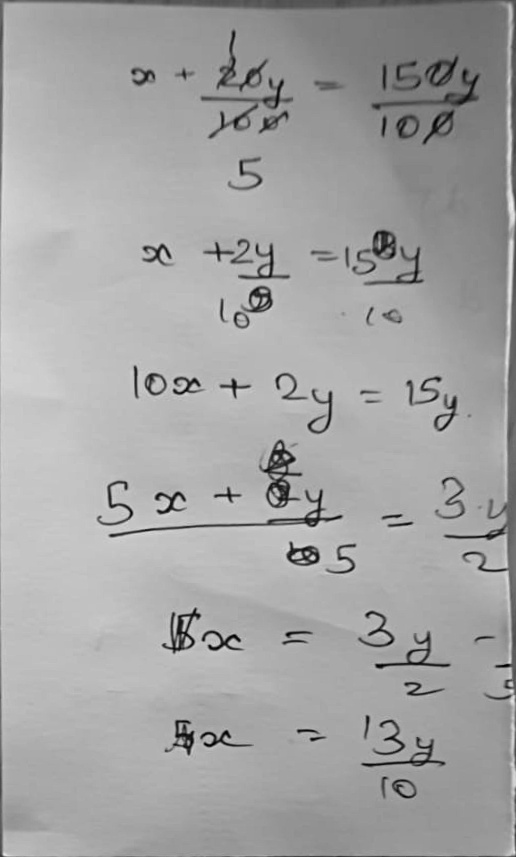 x + 20y/100 = 150y/100
1
5
x + 2y/10 = 15y/10
10x + 2y = 15y.
(5x + y)/5 = 3y/2
x = 3y/2 -
x = 13y/10